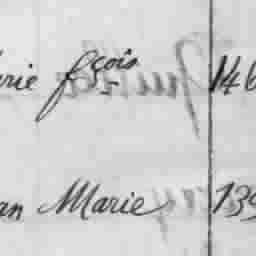 rie fçois 146
an Marie 139